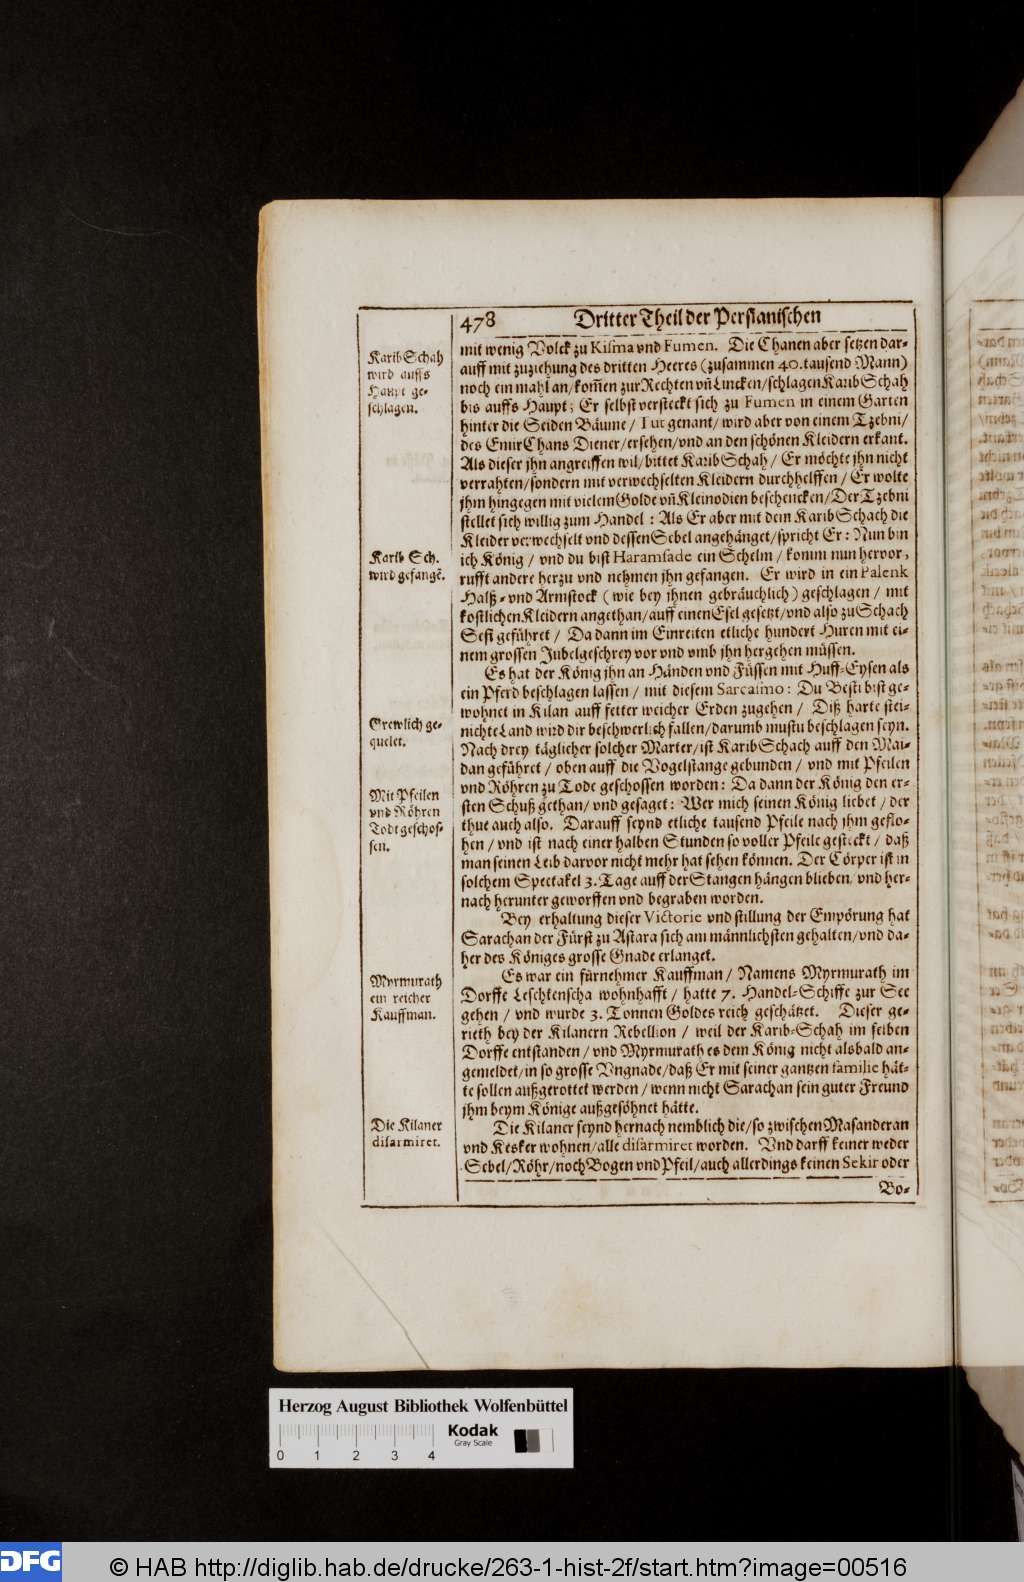 478 Dritter Theil der Persianischen
Karib Schah
wird auffs
Haupt ge-
schlagen.
mit wenig Volck zu Kisma vnd Fumen. Die Chanen aber setzen dar-
auff mit zuziehung des dritten Heeres (zusammen 40. tausend Mann)
noch ein mahl an/ kom̃en zur Rechten vñ Lincken/ schlagen Karib Schah
bis auffs Haupt; Er selbst versteckt sich zu Fumen in einem Garten
hinter die Seiden Bäume / Tut genant/ wird aber von einem Tzebni/
des Emir Chans Diener/ ersehen/ vnd an den schönen Kleidern erkant.
Als dieser jhn angreiffen wil/ bittet Karib Schah / Er möchte jhn nicht
verrahten/ sondern mit verwechselten Kleidern durchhelffen / Er wolte
jhm hingegen mit vielem Golde vñ Kleinodien beschencken/ Der Tzebni
stellet sich willig zum Handel : Als Er aber mit dem Karib Schach die
Kleider verwechselt vnd dessen Sebel angehänget/ spricht Er : Nun bin
Karib Sch.
wird gefangē.
ich König / vnd du bist Haramsade ein Schelm / komm nun hervor,
rufft andere herzu vnd nehmen jhn gefangen. Er wird in ein Palenk
Halß- vnd Armstock ( wie bey jhnen gebräuchlich ) geschlagen / mit
köstlichen Kleidern angethan/ auff einen Esel gesetzt/ vnd also zu Schach
Sefi geführet / Da dann im Einreiten etliche hundert Huren mit ei-
nem grossen Jubelgeschrey vor vnd vmb jhn hergehen müssen.
Es hat der König jhn an Händen vnd Füssen mit Huff-Eysen als
ein Pferd beschlagen lassen / mit diesem Sarcasmo : Du Besti bist ge-
wohnet in Kilan auff fetter weicher Erden zugehen / Diß harte stei-
Grewlich ge-
quelet.
nichte Land wird dir beschwerlich fallen/ darumb mustu beschlagen seyn.
Nach drey täglicher solcher Marter/ ist Karib Schach auff den Mai-
dan geführet / oben auff die Vogelstange gebunden / vnd mit Pfeilen
Mit Pfeilen
vnd Röhren
Todt geschos-
sen.
vnd Röhren zu Tode geschossen worden : Da dann der König den er-
sten Schuß gethan/ vnd gesaget : Wer mich seinen König liebet / der
thue auch also. Darauff seynd etliche tausend Pfeile nach jhm geflo-
hen / vnd ist nach einer halben Stunden so voller Pfeile gesteckt / daß
man seinen Leib darvor nicht mehr hat sehen können. Der Cörper ist in
solchem Spectakel 3. Tage auff der Stangen hängen blieben, vnd her-
nach herunter geworffen vnd begraben worden.
Bey erhaltung dieser Victorie vnd stillung der Empörung hat
Sarachan der Fürst zu Astara sich am männlichsten gehalten/ vnd da-
her des Königes grosse Gnade erlanget.
Myrmurath
ein reicher
Kauffman.
Es war ein fürnehmer Kauffman / Namens Myrmurath im
Dorffe Leschtenscha wohnhafft / hatte 7. Handel-Schiffe zur See
gehen / vnd wurde 3. Tonnen Goldes reich geschätzet. Dieser ge-
rieth bey der Kilanern Rebellion / weil der Karib-Schah im selben
Dorffe entstanden / vnd Myrmurath es dem König nicht alsbald an-
gemeldet/ in so grosse Vngnade/ daß Er mit seiner gantzen familie hät-
te sollen außgerottet werden / wenn nicht Sarachan sein guter Freund
jhm beym Könige außgesöhnet hätte.
Die Kilaner
disarmiret.
Die Kilaner seynd hernach nemblich die/ so zwischen Masanderan
vnd Kesker wohnen/ alle disarmiret worden. Vnd darff keiner weder
Sebel/ Röhr/ noch Bogen vnd Pfeil/ auch allerdings keinen Sekir oder
Bo-
Herzog August Bibliothek Wolfenbüttel
Kodak
Gray Scale
0 1 2 3 4
DFG © HAB http://diglib.hab.de/drucke/263-1-hist-2f/start.htm?image=00516